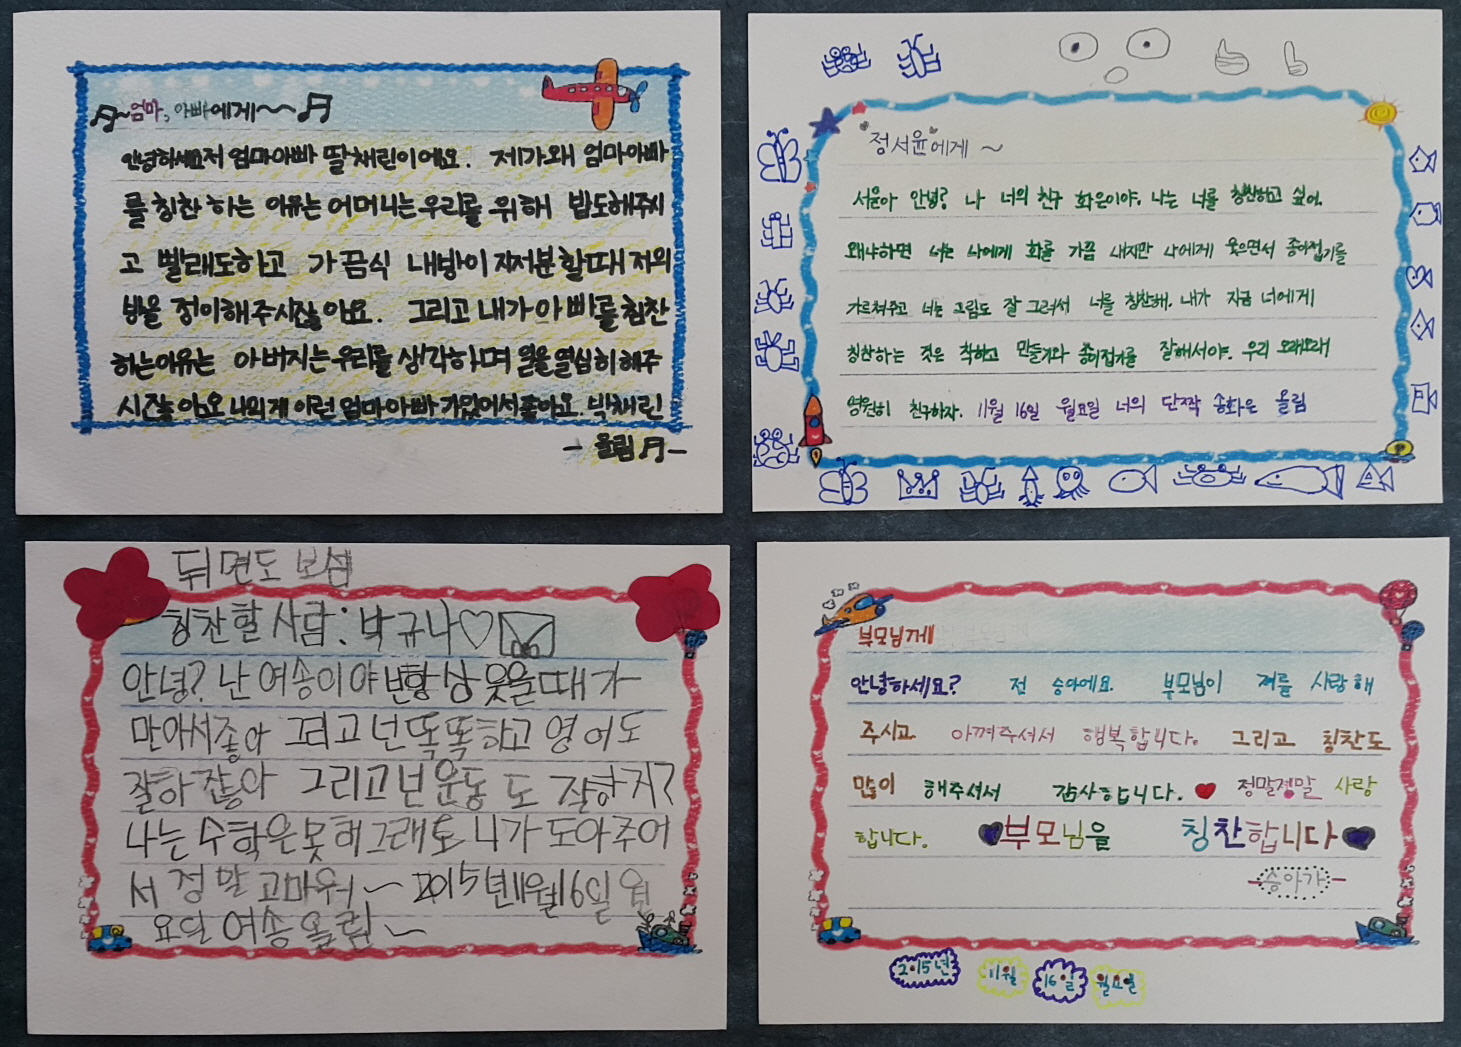 엄마, 아빠에게~~
안녕하세요 저 엄마아빠 딸 채린이에요. 제가 왜 엄마아빠
를 칭찬 하는 이유는 어머니는 우리를 위해 밥도해주시
고 빨래도하고 가끔식 내방이 지저분 할때 저의
방을 정이해 주시잖아요. 그리고 내가 아빠를 칭찬
하는이유는 아버지는 우리를 생각하며 일을 열심히 해주
시잖아요 나의게 이런 엄마아빠가 있어서 좋아요. 박채린
- 올림 -
정서윤에게 ~
서윤아 안녕? 나 너의 친구 화은이야. 나는 너를 칭찬하고 싶어.
왜냐하면 너는 나에게 화를 가끔 내지만 나에게 웃으면서 종이접기를
가르쳐주고 너는 그림도 잘 그려서 너를 칭찬해. 내가 지금 너에게
칭찬하는 것은 착하고 만들기와 종이접기를 잘해서야. 우리 오래오래
영원히 친구하자. 11월 16일 월요일 너의 단짝 송화은 올림
뒤면도 보셈
칭찬할 사람: 박규나♡
안녕? 난 여송이야 넌항상 웃을때가
만아서좋아 그리고 넌 똑똑하고 영어도
잘하잖아 그리고 넌 운동도 잘하지?
나는 수학은못해 그래도 니가 도아주어
서 정말 고마워 ~ 2015년11월16일 월
요일 여송 올림 ~
부모님께
안녕하세요? 전 승아에요. 부모님이 저를 사랑해
주시고 아껴주셔서 행복합니다. 그리고 칭찬도
많이 해주셔서 감사합니다. ♥ 정말정말 사랑
합니다. ♥부모님을 칭찬합니다♥
-승아가-
2015년 11월 16일 월요일